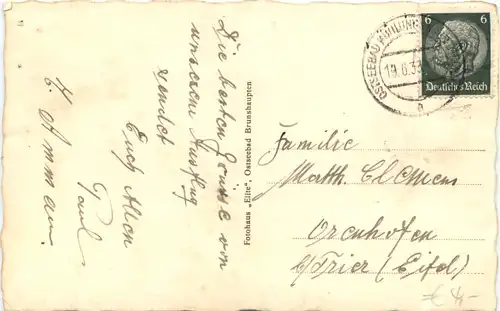 Die besten Grüsse von
unserem Ausflug
sendet
Euch Allen
Paul
H. Amman.
Fotohaus „Elite“, Ostseebad Brunshaupten
OSTSEEBAD
19.6.3
a
6 6
Deutsches Reich
Familie
Matth. Clemens
Orenhofen
b/Trier (Eifel)
€ 4,-